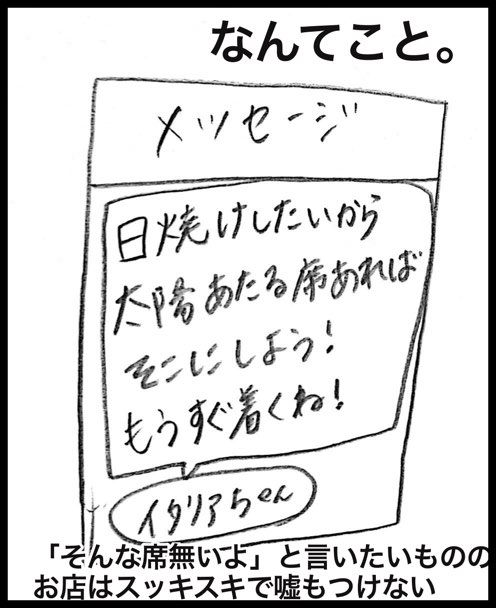 なんてこと。
メッセージ
日焼けしたいから
太陽あたる席あれば
そこにしよう！
もうすぐ着くね！
イタリアちゃん
「そんな席無いよ」と言いたいものの
お店はスッキスキで嘘もつけない